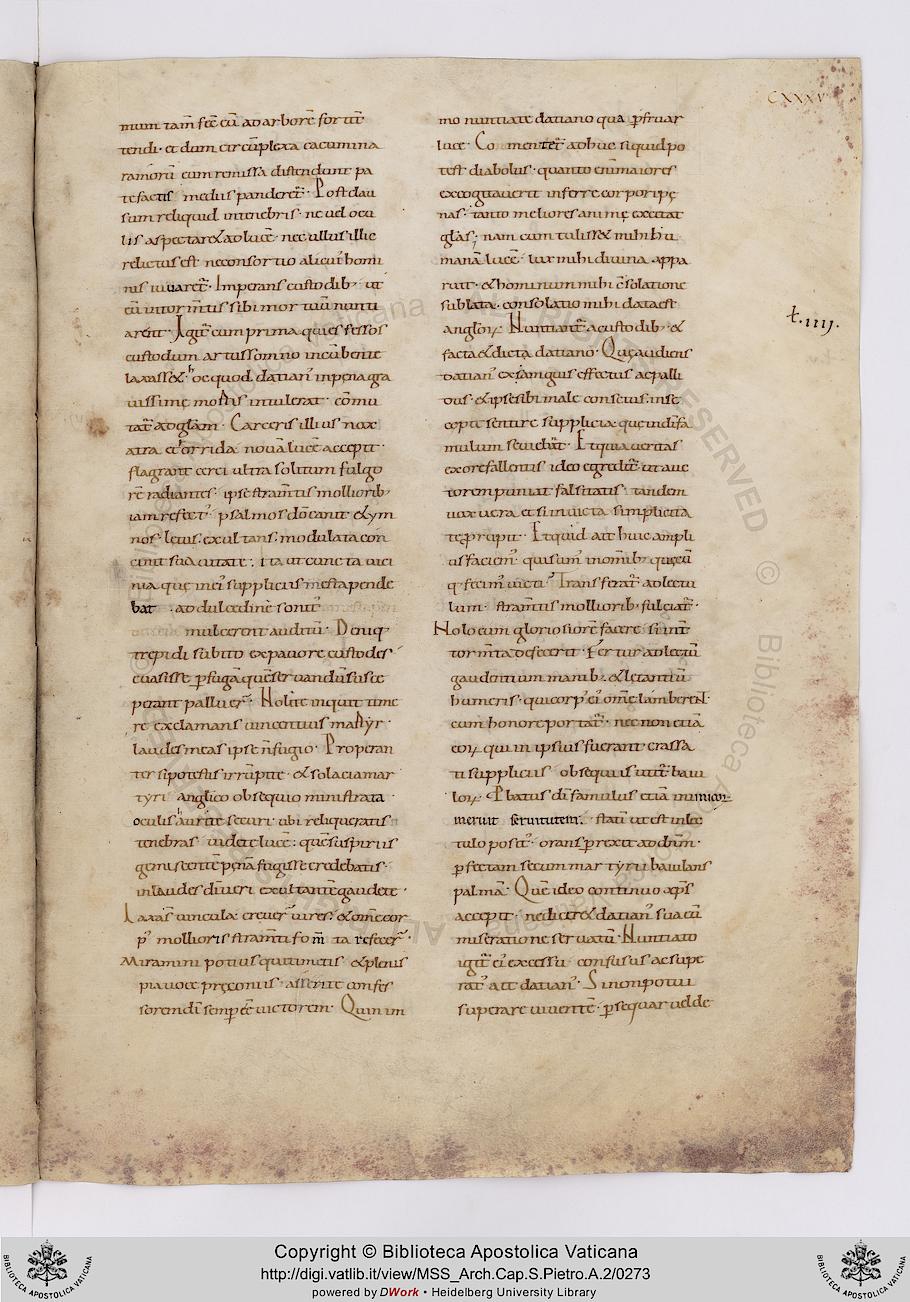 CXXXV
num tam̄ feć cū ad arborē for tit̄
tendi · et dum circūplexa cacumina
ramorū cum remissa distendunt pa
tefactis medius panderet̄ · Post dau
sum reliquid intenebris · ne uel ocu
lis aspectar&ad lucē · nec ullus illic
relictus est neconsortio alicui' homi
nis iuuaret̄ · Imperans custodib; ut
cū uitor mītus sibi mortuū nunti
arent · Igit̄ cum prima quies fessos
custodum artus somno incūberit
laxass& · hoc quod datian' inpena gra
uissime mortis intulerat · cōmu
tat̄ ad gl̄am · Carceris illius nox
atra et horrida · nouā lucē accepit ·
flagrant cerei ultra solitum fulgo
rē radiantes · ipse stram̄tis molliorib;
iam refect' · psalmos dō canit &ym
nos · letus · exultans · modulata con
cinit suauitate · Ita ut cuncta uici
nia que mei' suppliciis mesta pende
bat · ad dulcedinē sonit'
mulcerent auditū · Deniq
trepidi subito expauore custodes
euasisse p fuga quē seruandū susce
perant palluer̄ · Nolite inquit time
re exclamans uincentius martyr ·
laudes meas ipse n̄ fugio · Properan
ter si potestis irrūpite · & solacia mar
tyri anglico obsequio ministrata
oculis haurite securi · ubi reliqueratis
tenebras · uidete lucē : quē suspiriis
gemiscentē penā fugisse credebatis ·
in laudes dī ueri exultantē gaudete ·
Laxas̄ uincula: creuer̄ uires · & om̄e cor
p' mollioris stram̄ti fom̄ta refecer̄ ·
Miramini potius qui timetis & plenis
pia uoce preconiis · asserite confes
sorem dī semp eē uictorem · Quin im
mo nuntiate datiano qua p fruar
luce · Commentet̄ adhuc siquid po
test diabolus · quanto enī maiores
excogitauerit inferre corpori pe
nas · tanto meliores anime excitat
glās; nam cum tuliss& mihi hu
manā lucē · lux mihi diuina appa
ruit · & hominum mihi cōsolatione
sublata · consolatio mihi data est
angloȝ · Nuntiant̄ a custodib; &
facta & dicta datiano · Que audiens
datian' exsanguis effectus ac palli
dus · & ipse sibi male conscius · in se
cepit sentire supplicia · que indī fa
mulum seuiebat · Et quia ueritas
ex ore fallentis ideo egredit̄ ut auc
torem puniat falsitatis · tandem
uox uera etsi inuicta simplicita
te prupit · Et quid ait huic ampli
us faciem' · qui sum' in om̄ib; que cū
q fecim' uicti? Transferat̄ ad lectu
lum · stram̄tis mollioribus fulciat̄ ·
Nolo eum gloriosiorē facere · si int̄
tormta defecerit · Fertur ad lectū
gaudentium manib; & letantiū
humeris · qui corp' ei' om̄e lamberet ·
cum honore portat̄ · nec non etiā
eoȝ qui in ipsius fuerant crassa
ti suppliciis obsequiis utit̄ baiu
loȝ · Pbatus dī famulus etiā inimicoȝ
meruit seruitutem · statī ut est in lec
tulo posit' · orans prexit ad dn̄m ·
pfectam secum martyrii baiulans
palmā · Quē ideo continuo xp̄s
accepit · ne diceret & datian' sua cū
miseratione seruatū · Nuntiato
igit̄ ei' excessu confusus ac supe
rat' ait datian' · Si non potui
superare uiuentē · p sequar uel de
ł.iiij.
Copyright © Biblioteca Apostolica Vaticana
http://digi.vatlib.it/view/MSS_Arch.Cap.S.Pietro.A.2/0273
powered by DWork • Heidelberg University Library